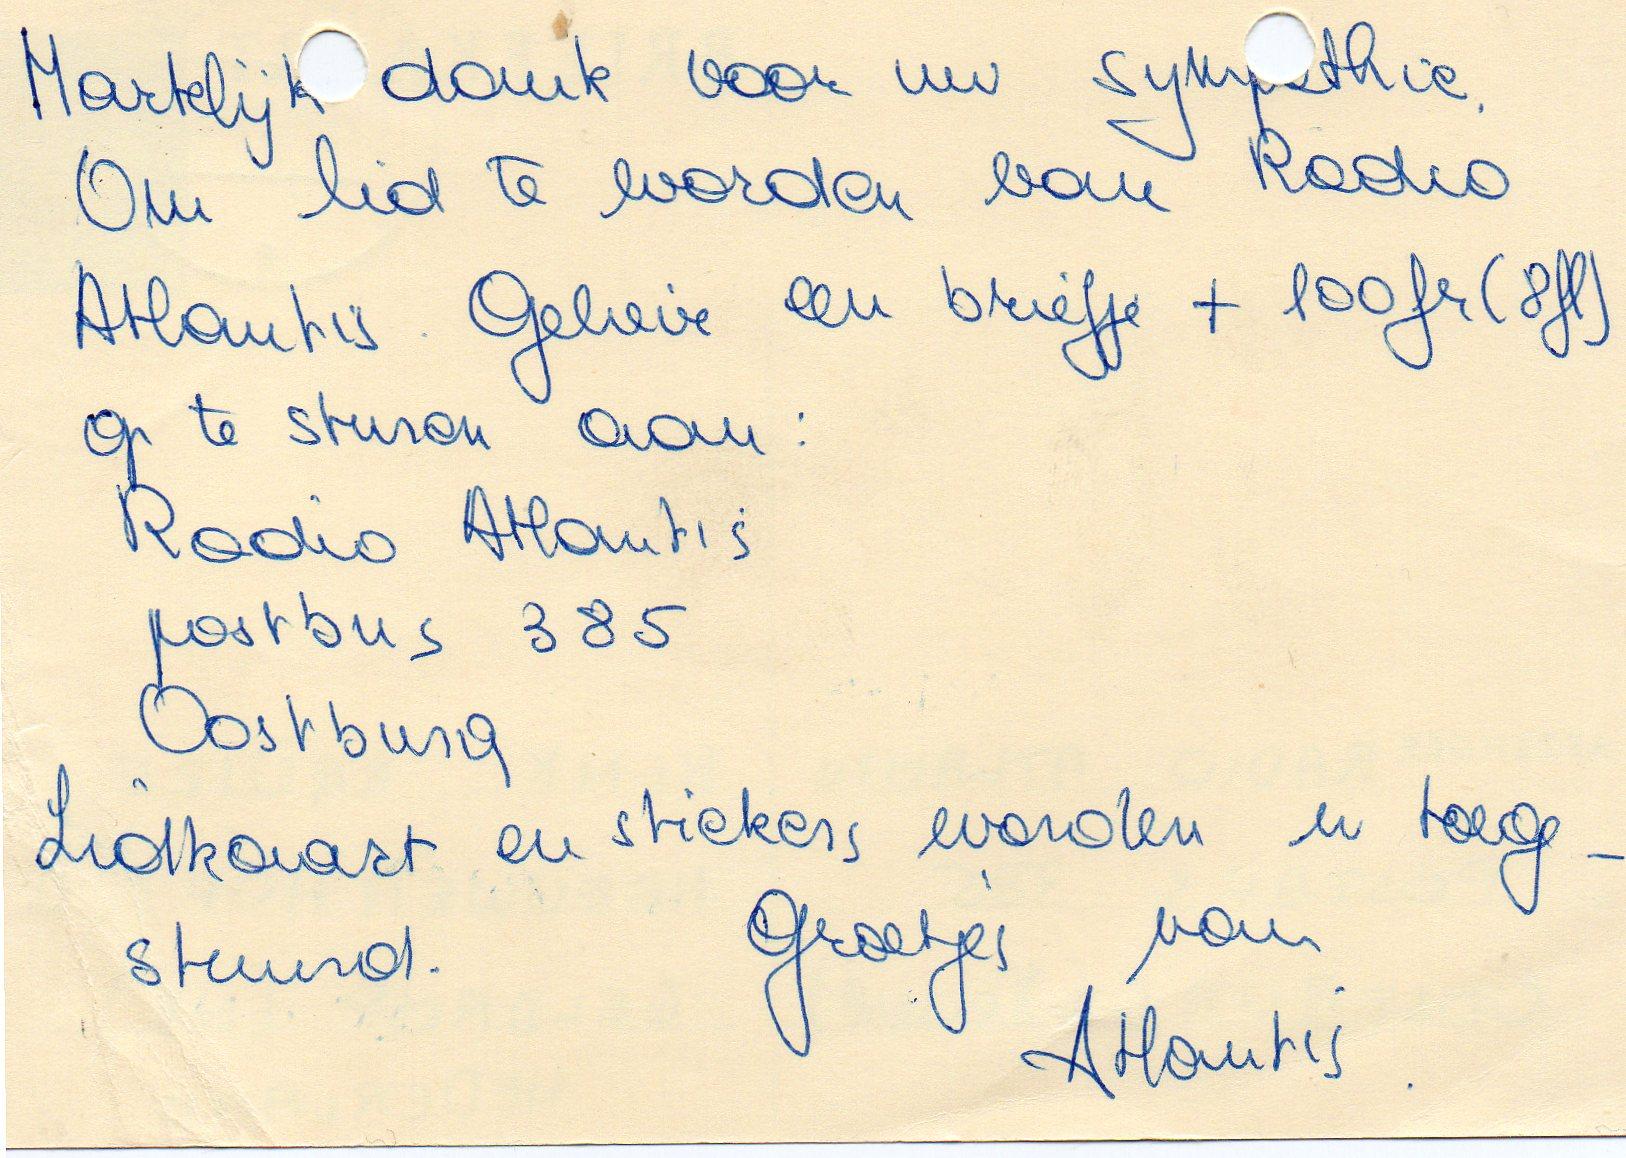 Hartelijk dank voor uw sympathie.
Om lid te worden van Radio
Atlantis. Gelieve een briefje + 100 fr (8fl)
op te sturen aan:
Radio Atlantis
postbus 385
Oostburg
Lidkaart en stickers worden u toege-
stuurd. Groetjes van
Atlantis.